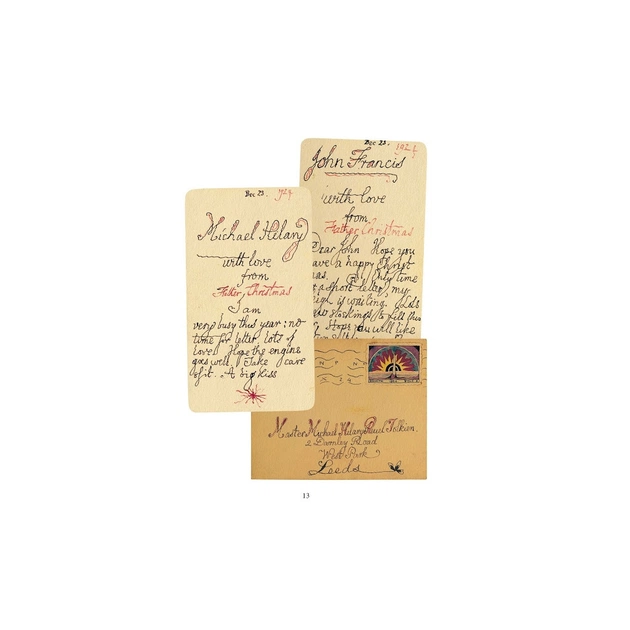 Dec 23. 1924
Michael Hilary
with love
from
Father Christmas
I am
very busy this year : no
time for letter. Lots of
love. Hope the engine
goes well. Take care
of it. A big kiss
Dec 23. 1924
John Francis
with love
from
Father Christmas
Dear John Hope you
ave a happy Christ
as. Only time
a short letter, my
eigh is waiting. Lots
new stockings to fill this
Hope you will like
Master Michael Hilary Reuel Tolkien.
2 Darnley Road
West Park
Leeds
13